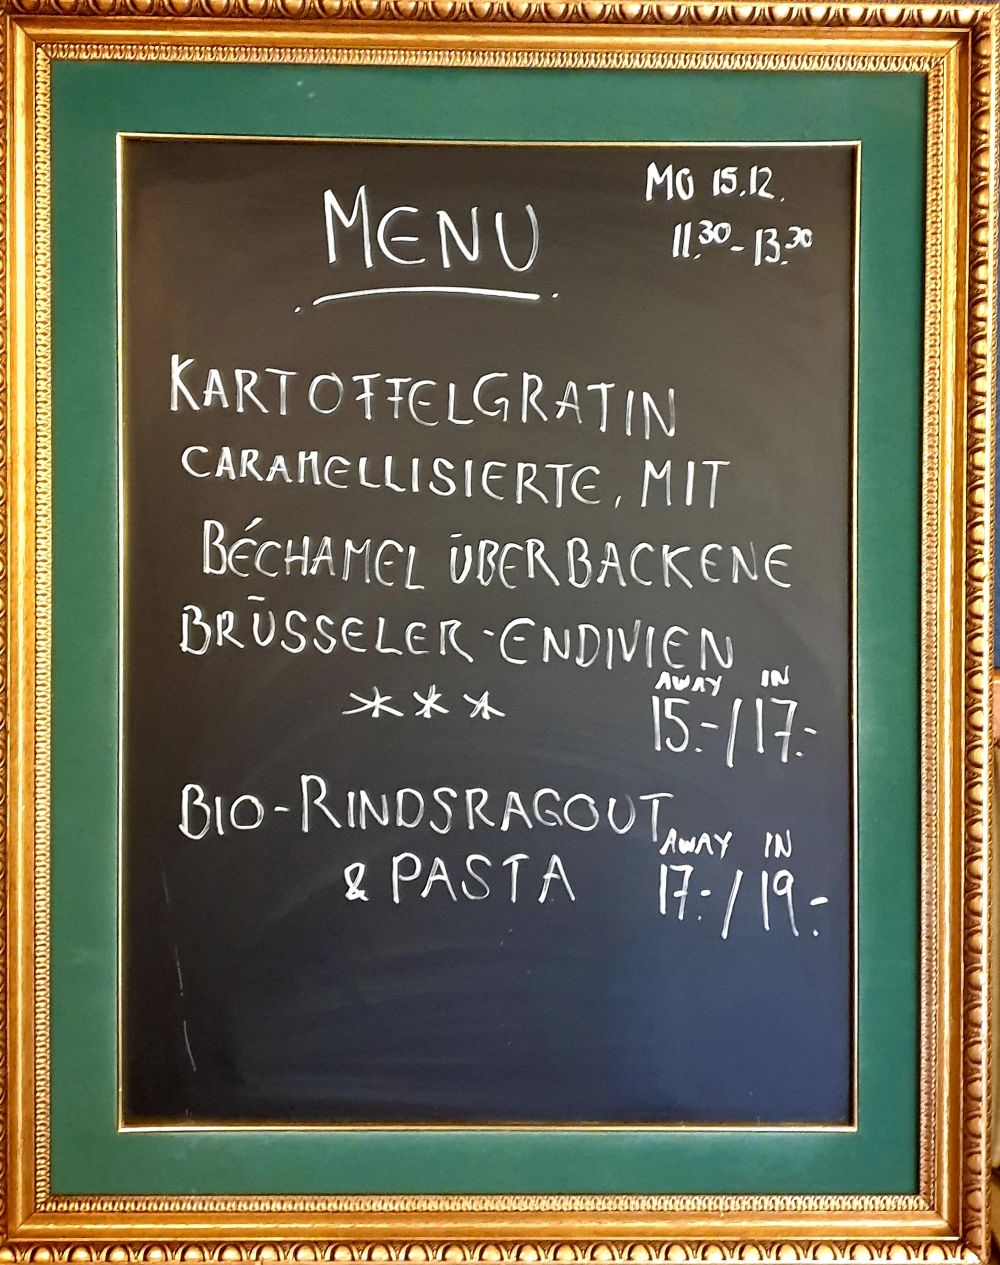 MENU
MO 15.12.
11.30 - 13.30
KARTOFFELGRATIN
CARAMELLISIERTE, MIT
BÉCHAMEL ÜBERBACKENE
BRÜSSELER-ENDIVIEN
***
AWAY IN
15.-/17.-
BIO-RINDSRAGOUT
& PASTA
AWAY IN
17.-/19.-